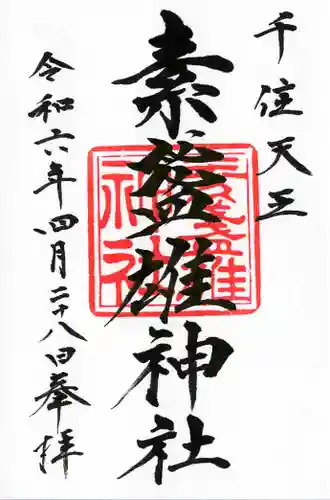 千住天王
素盞雄神社
令和六年四月二十八日奉拝